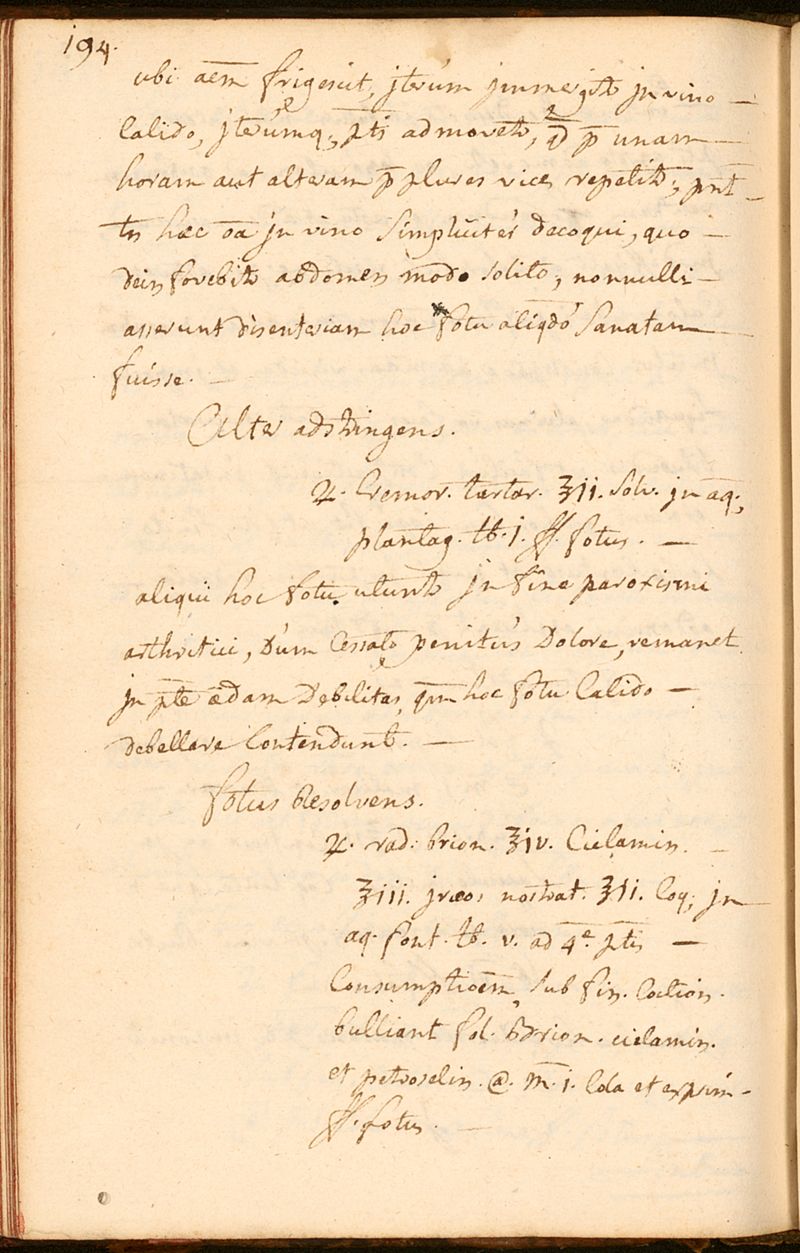 194.
ubi aem̄ frigescit, jterúm jmmergit̄ jn vino —
Calido, jterúmq; pt̄i admovet̄, qd̄ p̄ unam —
horam aut alteram p̄ plures vices repetit̄; pn̄t —
tn̄ hæc oā jn vino simplicitér decoqui, quo —
dein fovebit̄ abdomen modo solito, nonnulli —
asserunt disenteriam hoc fotu aliqdó sanatam —
fuisse. —
Alter adstringens.
♃. Cremor. tartar. ℥ii. solv. jn aq;
plantag. ℔. j. ff. fotus. —
aliqui hoc fotu utunt̄ jn fine paroxismi
arthritici, dúm Cessato penitús Dolore, remanet
jn pt̄e ædam Debilitas, qm̄ hoc fotu Calido —
debellare Contendunt. —
fotus Resolvens.
♃. rad. brion. ℥iv. Cielamin. —
℥iii. jreos nostrat. ℥ii. Coq; jn —
aq. font. ℔. v. ad 4ᵉ pt̄is —
Consumptioēm, sub fin. Coction.
bulliant fol. Brion. cielamin.
et petroselin. @. m. i. Cola et exprim —
ff. fotus. —